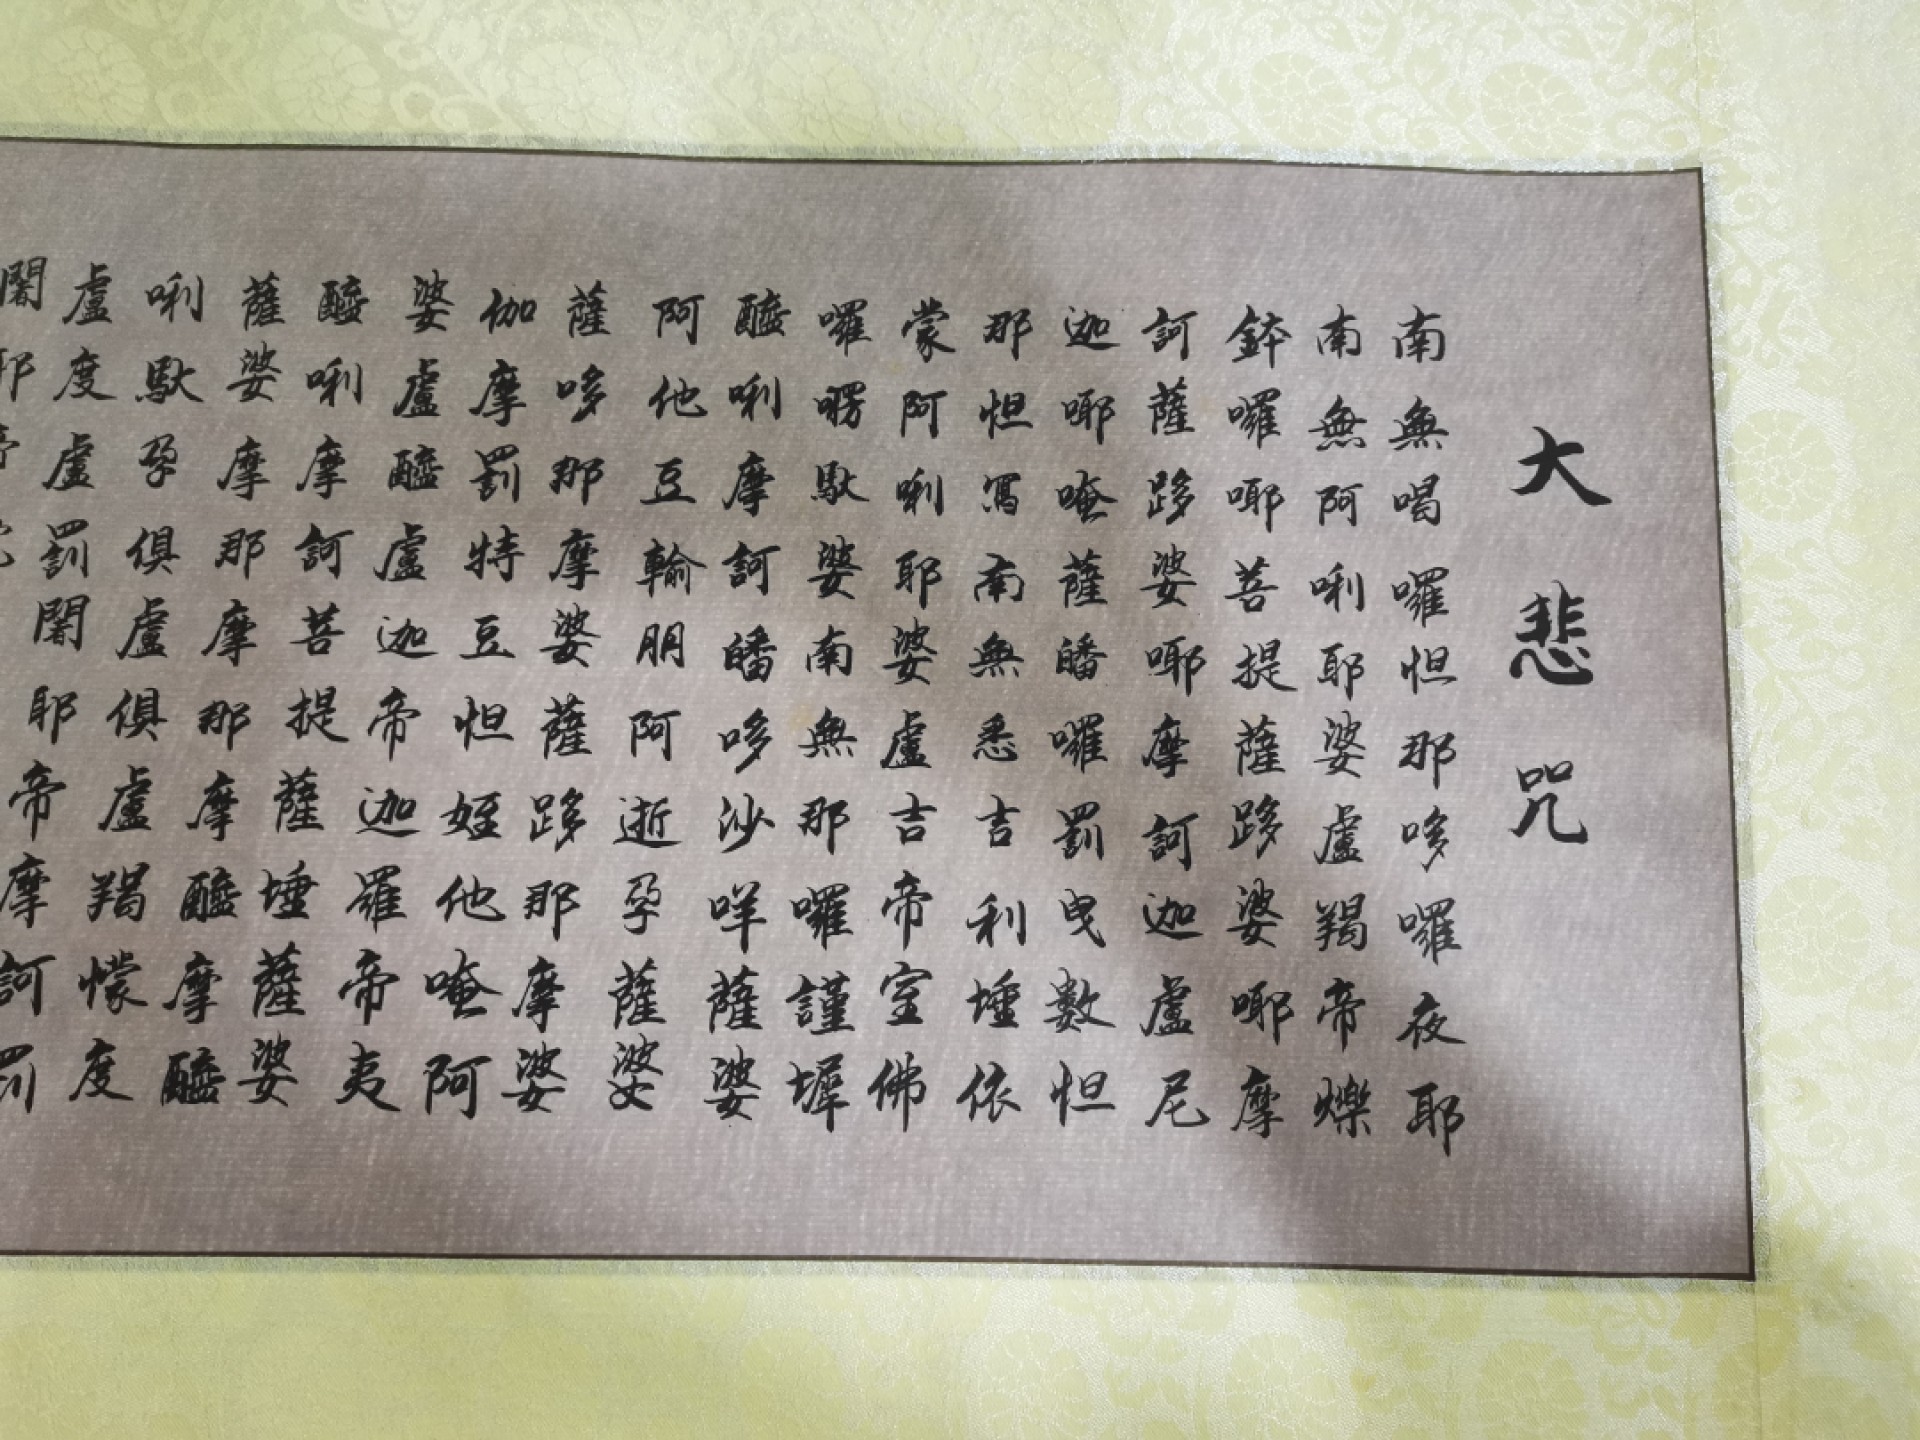 大悲咒
南無喝囉怛那哆囉夜耶
南無阿唎耶婆盧羯帝爍
鉢囉耶菩提薩跢婆耶摩
訶薩跢婆耶摩訶迦盧尼
迦耶唵薩皤囉罰曳數怛
那怛寫南無悉吉利埵依
蒙阿唎耶婆盧吉帝室佛
囉楞馱婆南無那囉謹墀
醯唎摩訶皤哆沙咩薩婆
阿他豆輸朋阿逝孕薩婆
薩哆那摩婆薩跢那摩婆
伽摩罰特豆怛姪他唵阿
婆盧醯盧迦帝迦羅帝夷
醯唎摩訶菩提薩埵薩婆
薩婆摩那摩那摩醯摩醯
唎馱孕俱盧俱盧羯懞度
盧度盧罰闍耶帝摩訶罰
闍耶帝